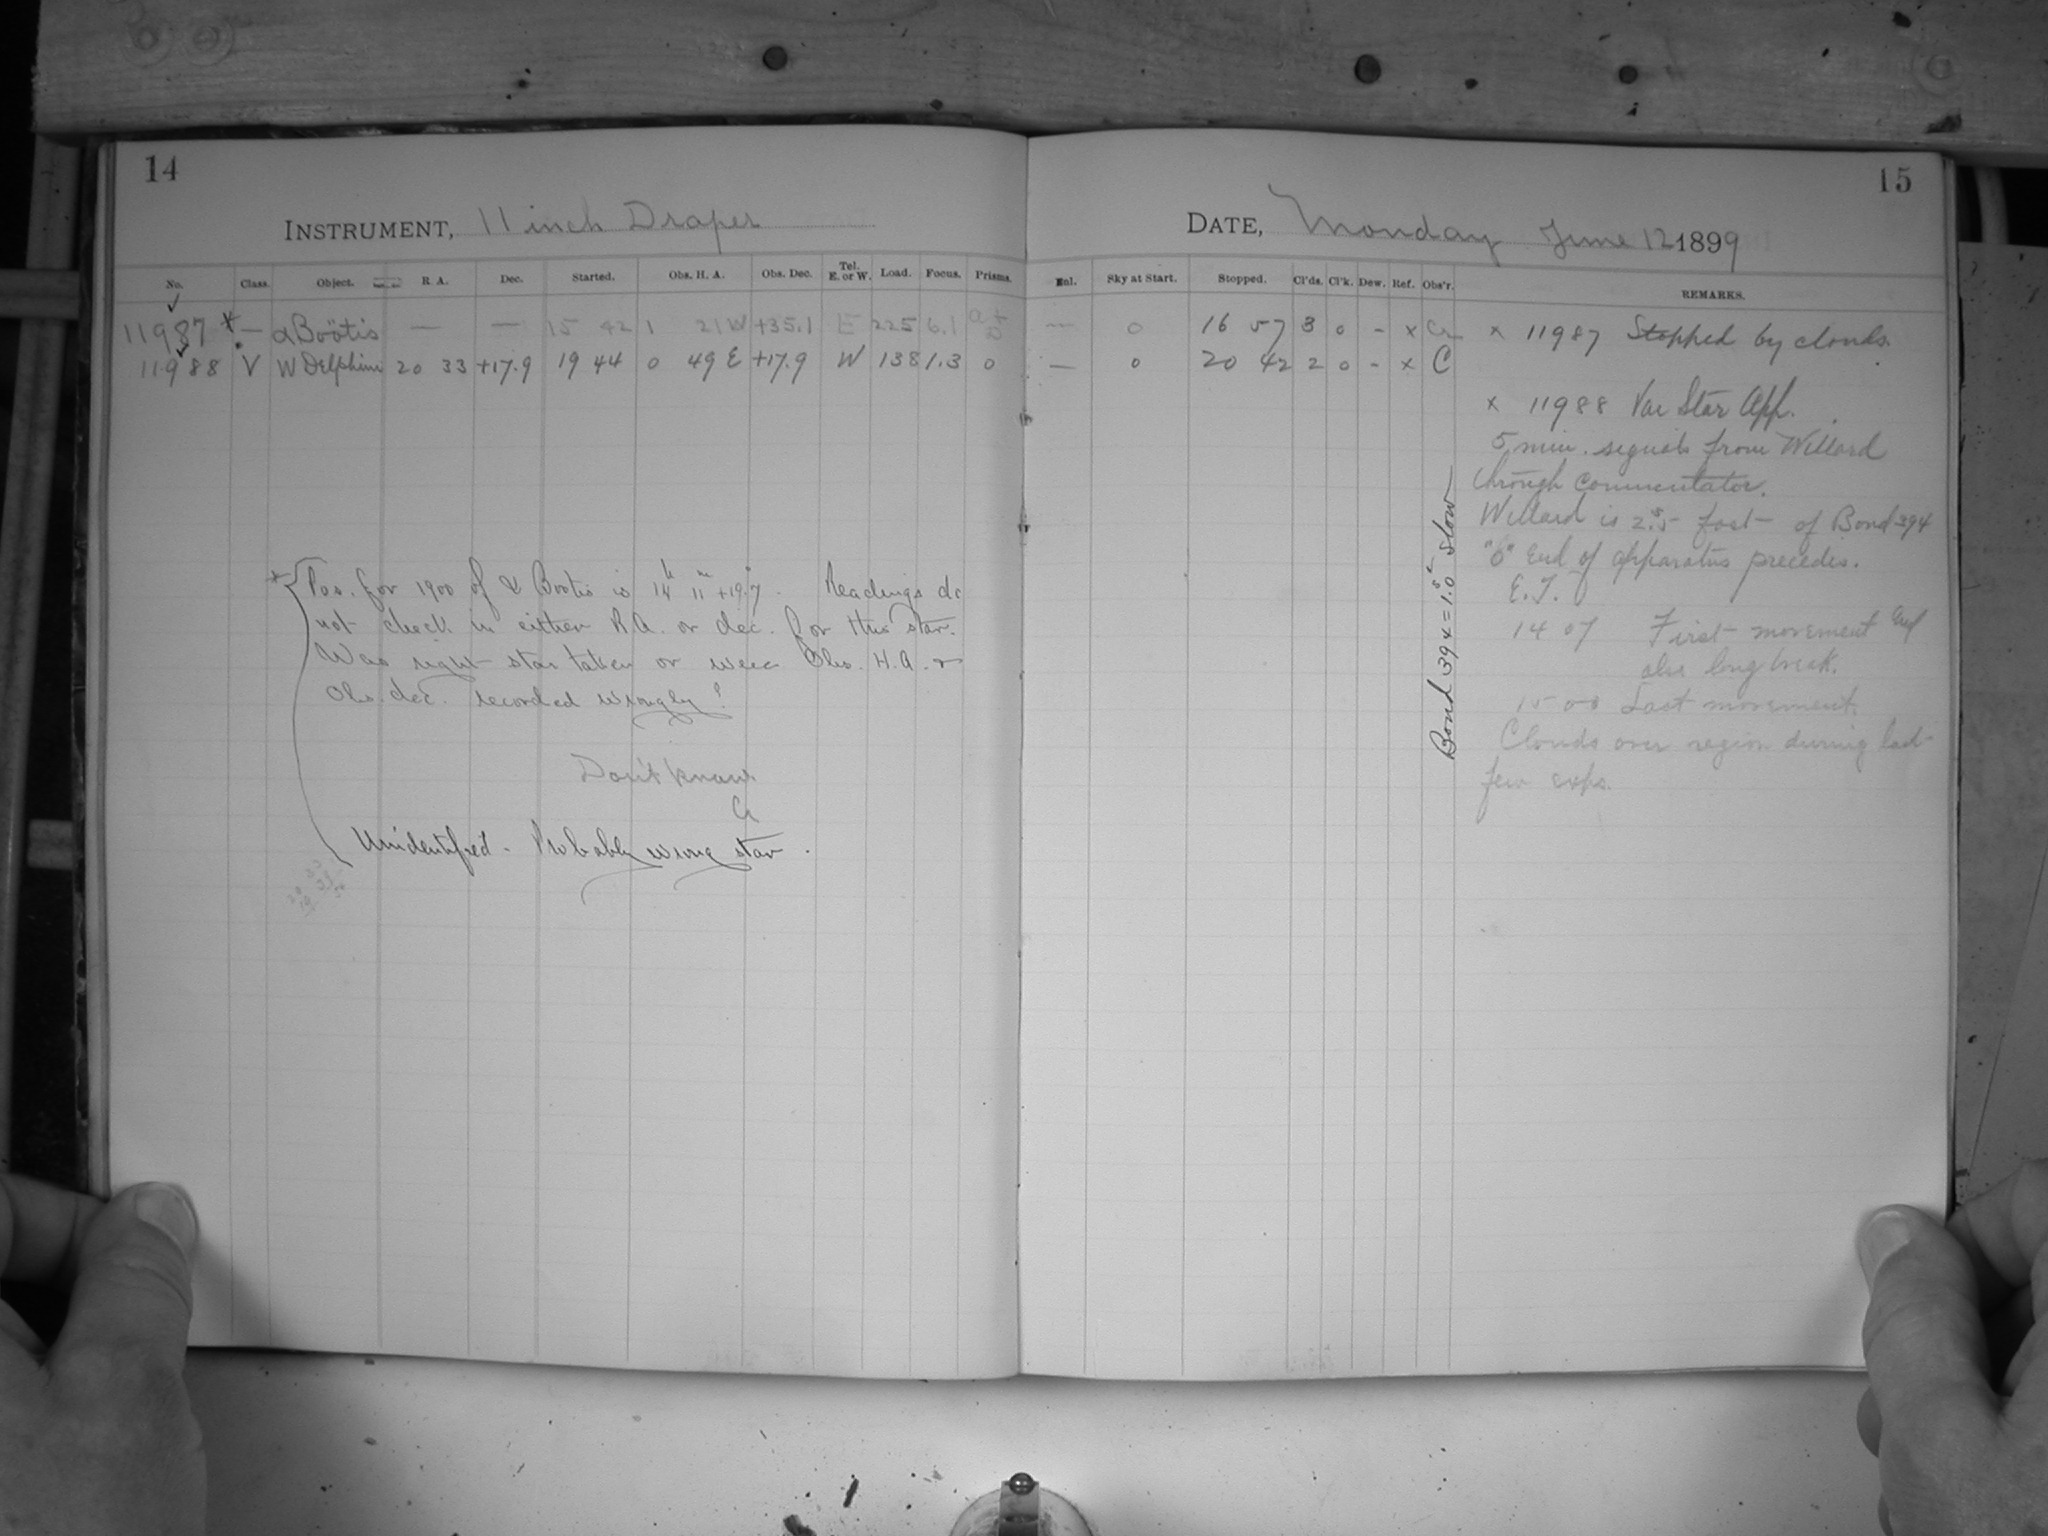 14
INSTRUMENT, 11 inch Draper
No. Class. Object. R. A. Dec. Started. Obs. H. A. Obs. Dec. Tel. E. or W. Load. Focus. Prisms.
11987 * — α Boötis — — 15 42 1 21 W +35.1 E 225 6.1
11988 V W Delphini 20 33 +17.9 19 44 0 49 E +17.9 W 138 1.3 0
* Pos. for 1900 of α Bootis is 14h 11m +19°.7. Readings do
not check in either R.A. or dec. for this star.
Was right star taken or were Obs. H.A. &
Obs. dec. recorded wrongly?
Don't know.
Unidentified - Probably wrong star.
15
DATE, Monday June 12 1899
Sky at Start. Stopped. Cl'ds. Cl'k. Dew. Ref. Obs'r. REMARKS.
— 0 16 57 3 0 - x x 11987 Stopped by clouds.
— 0 20 42 2 0 - x C
x 11988 Var Star App.
5 min. signals from Willard
through Commutator.
Willard is 2s.5 fast of Bond 394
"b" End of apparatus precedes.
E.T.
14 07 First movement and
also long break.
15 00 Last movement.
Clouds over region during last
few exps.
Bond 394 = 1.s0 slow